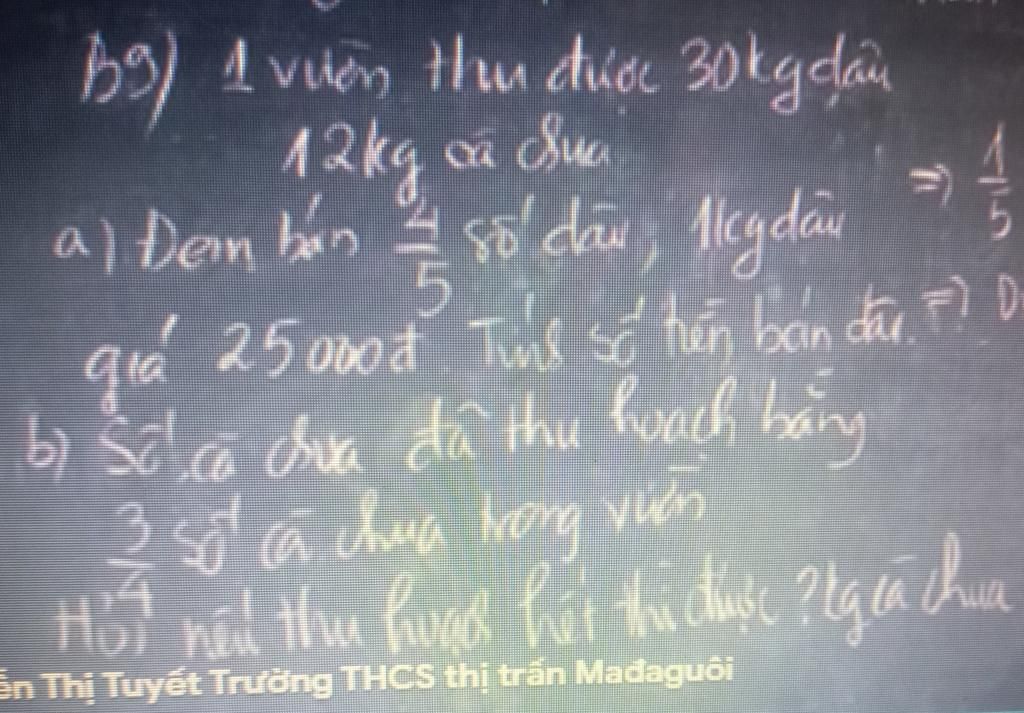 B9) 1 vườn thu được 30kg dâu
12kg cà chua
a) Đem bán 4/5 số dâu, 1kg dâu ⇒ 1/5
giá 25000đ. Tính số tiền bán dâu. ⇒
b) Số cà chua đã thu hoạch bằng
3/4 số cà chua trong vườn
Hỏi nếu thu hoạch hết thì được ? kg cà chua
Thị Tuyết Trường THCS thị trấn Mađaguôi